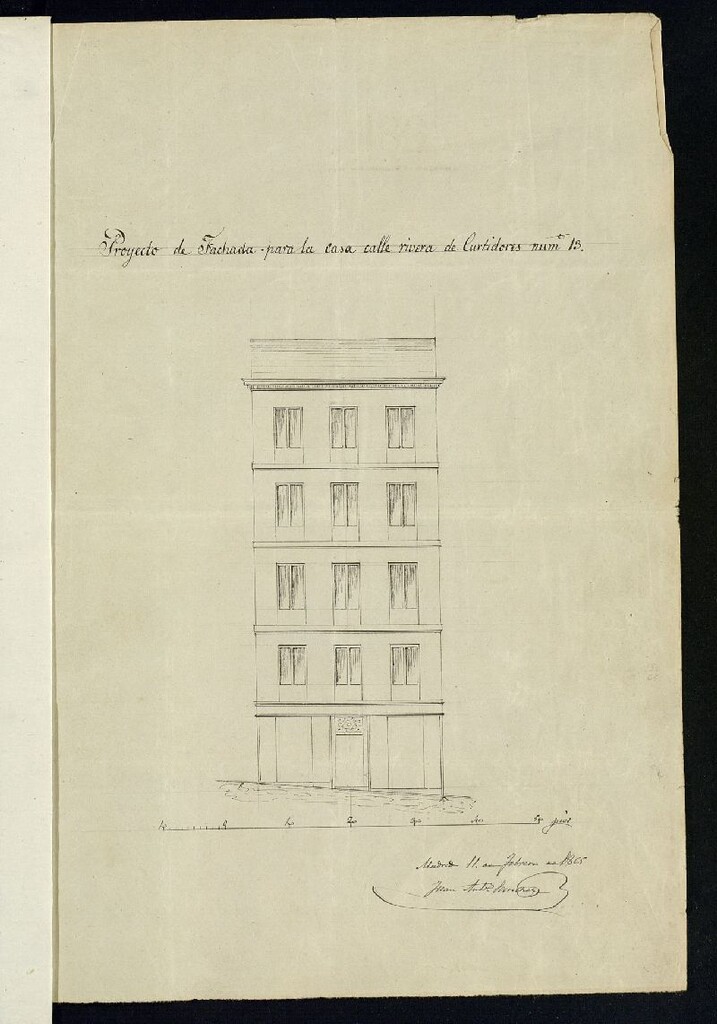 Proyecto de Fachada para la casa calle rivera de Curtidores num.º 13.
10 0 10 20 30 40 50 pies
Madrid 11 de Febrero de 1865
Juan